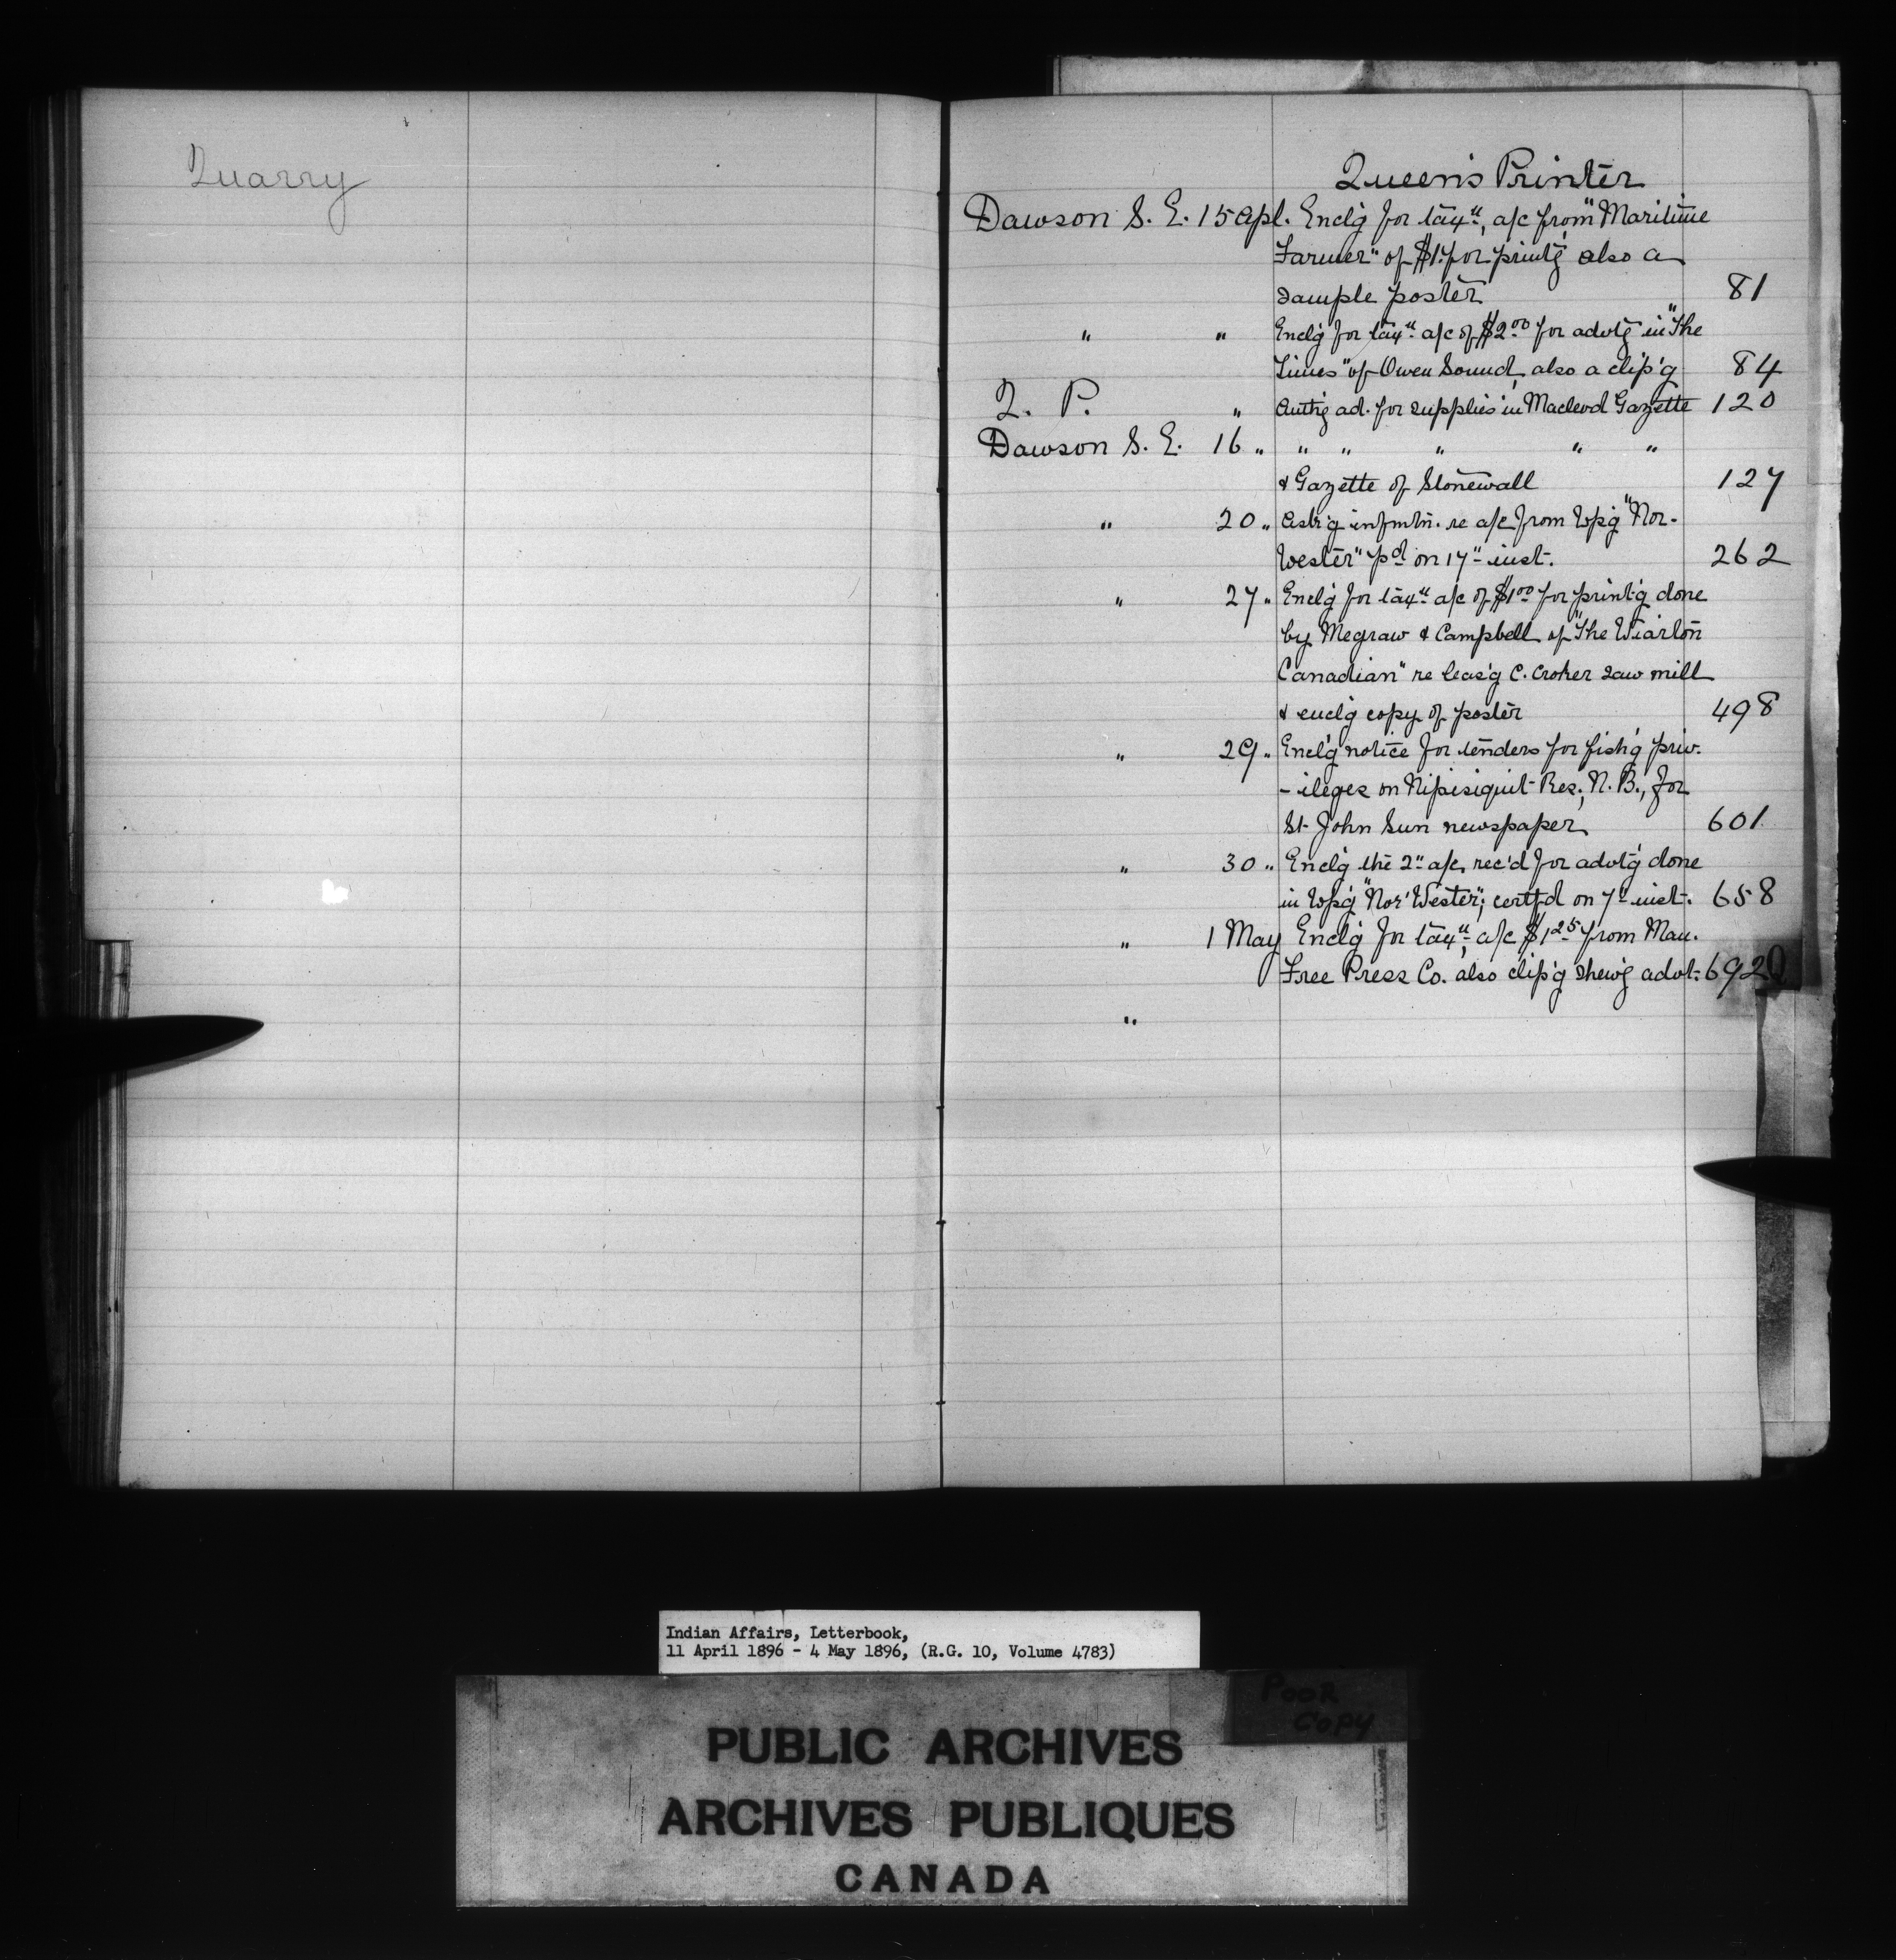 Quarry
Queen's Printer
Dawson S. E. 15 Apl. Encl'g for tax<sup>n</sup>, a/c from "Maritime
Farmer" of $1. for print'g also a
sample poster 81
" " Encl'g for tax<sup>n</sup> a/c of $2<sup>00</sup> for advt'g in "The
Times" of Owen Sound, also a clip'g 84
Q. P. " Auth'g ad. for supplies in Macleod Gazette 120
Dawson S. E. 16 " " " " " "
& Gazette of Stonewall 127
" 20 " Ask'g infmtn. re a/c from Wp'g "Nor-
Wester" p<sup>d</sup> on 17" inst. 262
" 27 " Encl'g for tax<sup>n</sup> a/c of $1<sup>00</sup> for print'g done
by Megraw & Campbell of "The Wiarton
Canadian" re leas'g C. Croker saw mill
& encl'g copy of poster 498
" 29 " Encl'g notice for tenders for fish'g priv-
-ileges on Nipisiquit Res., N. B., for
St. John Sun newspaper 601
" 30 " Encl'g the 2" a/c, rec'd for advt'g done
in Wp'g "Nor'Wester"; certf'd on 7" inst. 658
" 1 May Encl'g for tax<sup>n</sup>, a/c $1<sup>25</sup> from Man.
Free Press Co. also clip'g shew'g advt. 692
"
Indian Affairs, Letterbook,
11 April 1896 - 4 May 1896, (R.G. 10, Volume 4783)
POOR
COPY
PUBLIC ARCHIVES
ARCHIVES PUBLIQUES
CANADA